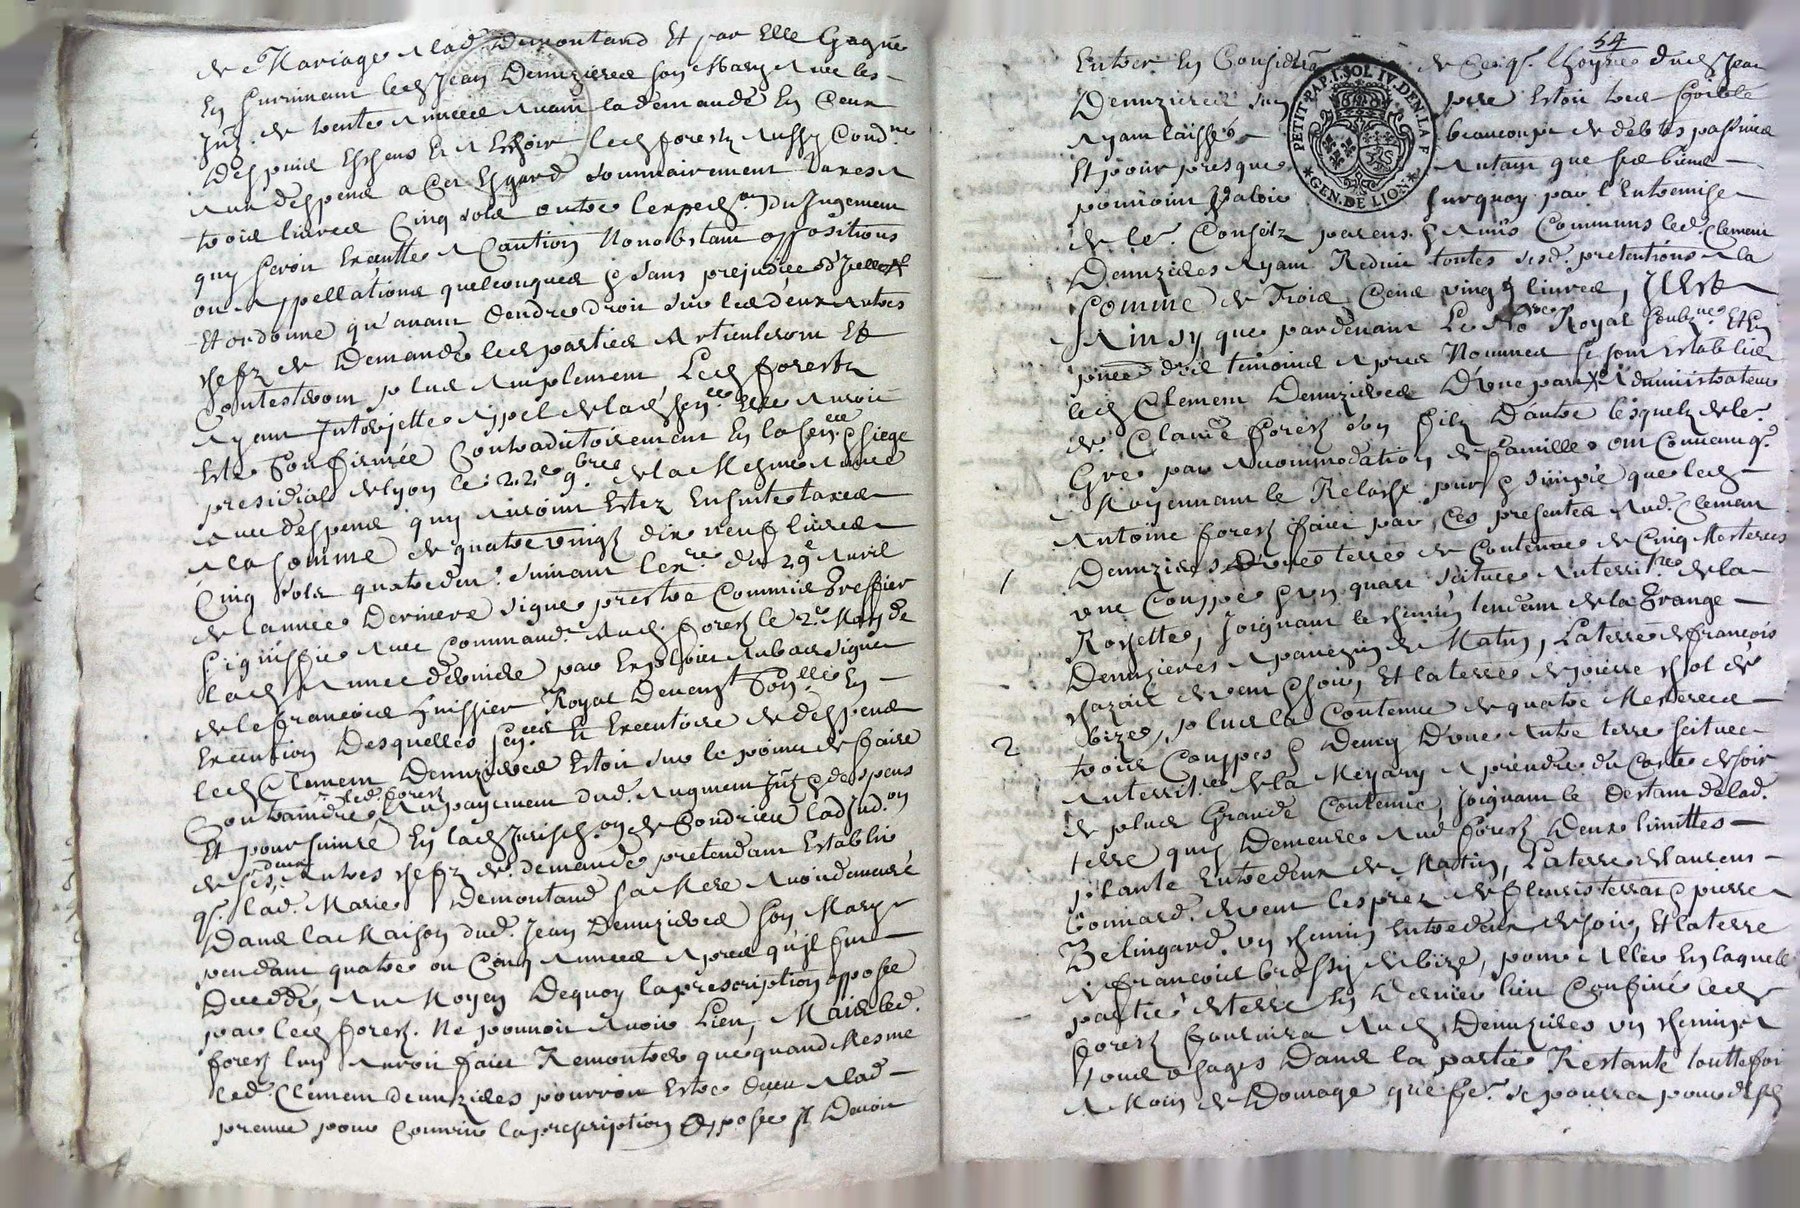 de Mariage a lad. Demontand Et par Elle Gagné
En survivant led. Jean Denuzieres son Mary avec les
Intz. de trente années avant la demande En Ceux
Despuis Escheus Et a Eschoir led. forestz aussy Condne.
aux despens a Cet Esgard sommairement taxes a
trois livres Cinq sols outre lexpedon. du Jugement
quy seroit Executté a Caution Nonobstant oppositions
ou appellations quelconques & sans prejudice d'Icelles
Et ordonne qu'avant dendre droit sur les deux autres
chefz de Demande led. parties articuleront Et
Contesteront plus amplement Led. forestz
ayant Interjetté appel de lad. senee. Elle auroit
Esté Confirmée Contradictoirement En la senee. & siege
presidial de lyon le 22e. 9bre. de la Mesme année
avec despens quy auroint Estez Ensuitte taxes
a la somme de quatre vingtz dix neuf livres
Cinq sols quatre den. suivant lexre. du 29e. Avril
de lannée Derniere signé prestre Commis Greffier
signiffié avec Command. aud. forestz le 2e. May de
lad. année derniere par Exploict au bas signé
de le francois huissier Royal
Execution Desquelles senees. Et Executoire de despens
led. Clement Denuzieres Estoit sur le point de faire
Contraindre led. forestz au payement dud. augment Intz & despens
Et poursuivre En lad. Jurisdon. de Condrieu ladjudon.
de ses deux autres chefz de demande pretendant Establir
q. lad. Marie Demontand sa Mere avoit demeuré
Dans la Maison dud. Jean Denuzieres son Mary
pendant quatre ou Cinq années apres qu'il fut
Deceddé, au Moyen Dequoy la prescription opposée
par led. forestz. Ne pouvoit avoir Lieu, Mais led.
forestz luy auroit fait Remontrer que quand Mesme
led. Clement denuzieres pourroit Estre Receu a lad.
preuve pour Couvrir la prescription opposée Il Devoit
54
Entrer En Consideraon. de Ce q. lhoyrie dud. Jean
Denuzieres son pere Estoit tres foible
ayant laissé beaucoup de debtes passives
Et pour presque autant que ses biens
pouvoint Valoir surquoy par l'Entremise
de le. Conseilz parens & amis Communs led. Clement
Denuzieres ayant Reduit toutes sesd. pretentions a la
somme de Trois Cens vingt livres, Il Est
Ainsy que pardevant Le Nore. Royal soubzne. Et En
pnce. des temoins apres Nommes se sont Establis
led. Clement Denuzieres D'une part & administrateur
de Claude forestz son filz D'autre lesquelz de le.
Gré par accommodation de famille ont Convenu q.
Moyennant le Relache pur & simple que led.
Antoine forestz fait par Ces presentes aud. Clement
Denuzieres D'une terre de Contenue de Cinq Mesteres
1
une Couppe & un quart scituée au territre. de la
Rozette, Joignant le chemin tendant de la Grange
Denuzieres a panezin de Matin, La terre de francois
chazail de vent & soir, Et la terre de pierre chol de
bize, plus la Contenue de quatre Mesteres
2
trois Couppes & Demy D'une autre terre scituée
au territre. de la Meyary a prendre du Costé de soir
de plus Grande Contenue, Joignant le Restant de lad.
terre quy Demeure aud. forestz Deux limittes
plantés Entredeux de Matin, La terre de laurens
Bonnard. de vent les prez de fleurie terras & pierre
Belingard. un chemin Entredeux de soir, Et la terre
de francois brossy de bize, pour aller En laquelle
partie de terre En Dernier lieu Confiné led.
forestz fournira aud. Denuzieres un chemin a
tous usages Dans la partie Restante touttefois
a Moin de Domage que fe. se pourra pour desd.
PETIT.PAP.I.SOL.IV.DEN.LA F
GEN.DE LION